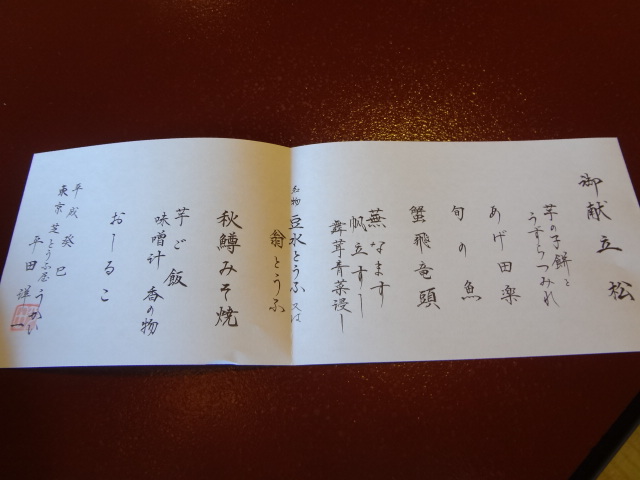 御献立 松
芋の子餅と
うずらつみれ
あげ田楽
旬の魚
蟹飛竜頭
蕪なます
帆立すし
舞茸青菜浸し
名物 豆水とうふ 又は
翁とうふ
秋鱒みそ焼
芋ご飯
味噌汁 香の物
おしるこ
平成癸巳
東京 芝 とうふ屋うかい
平田 祥一